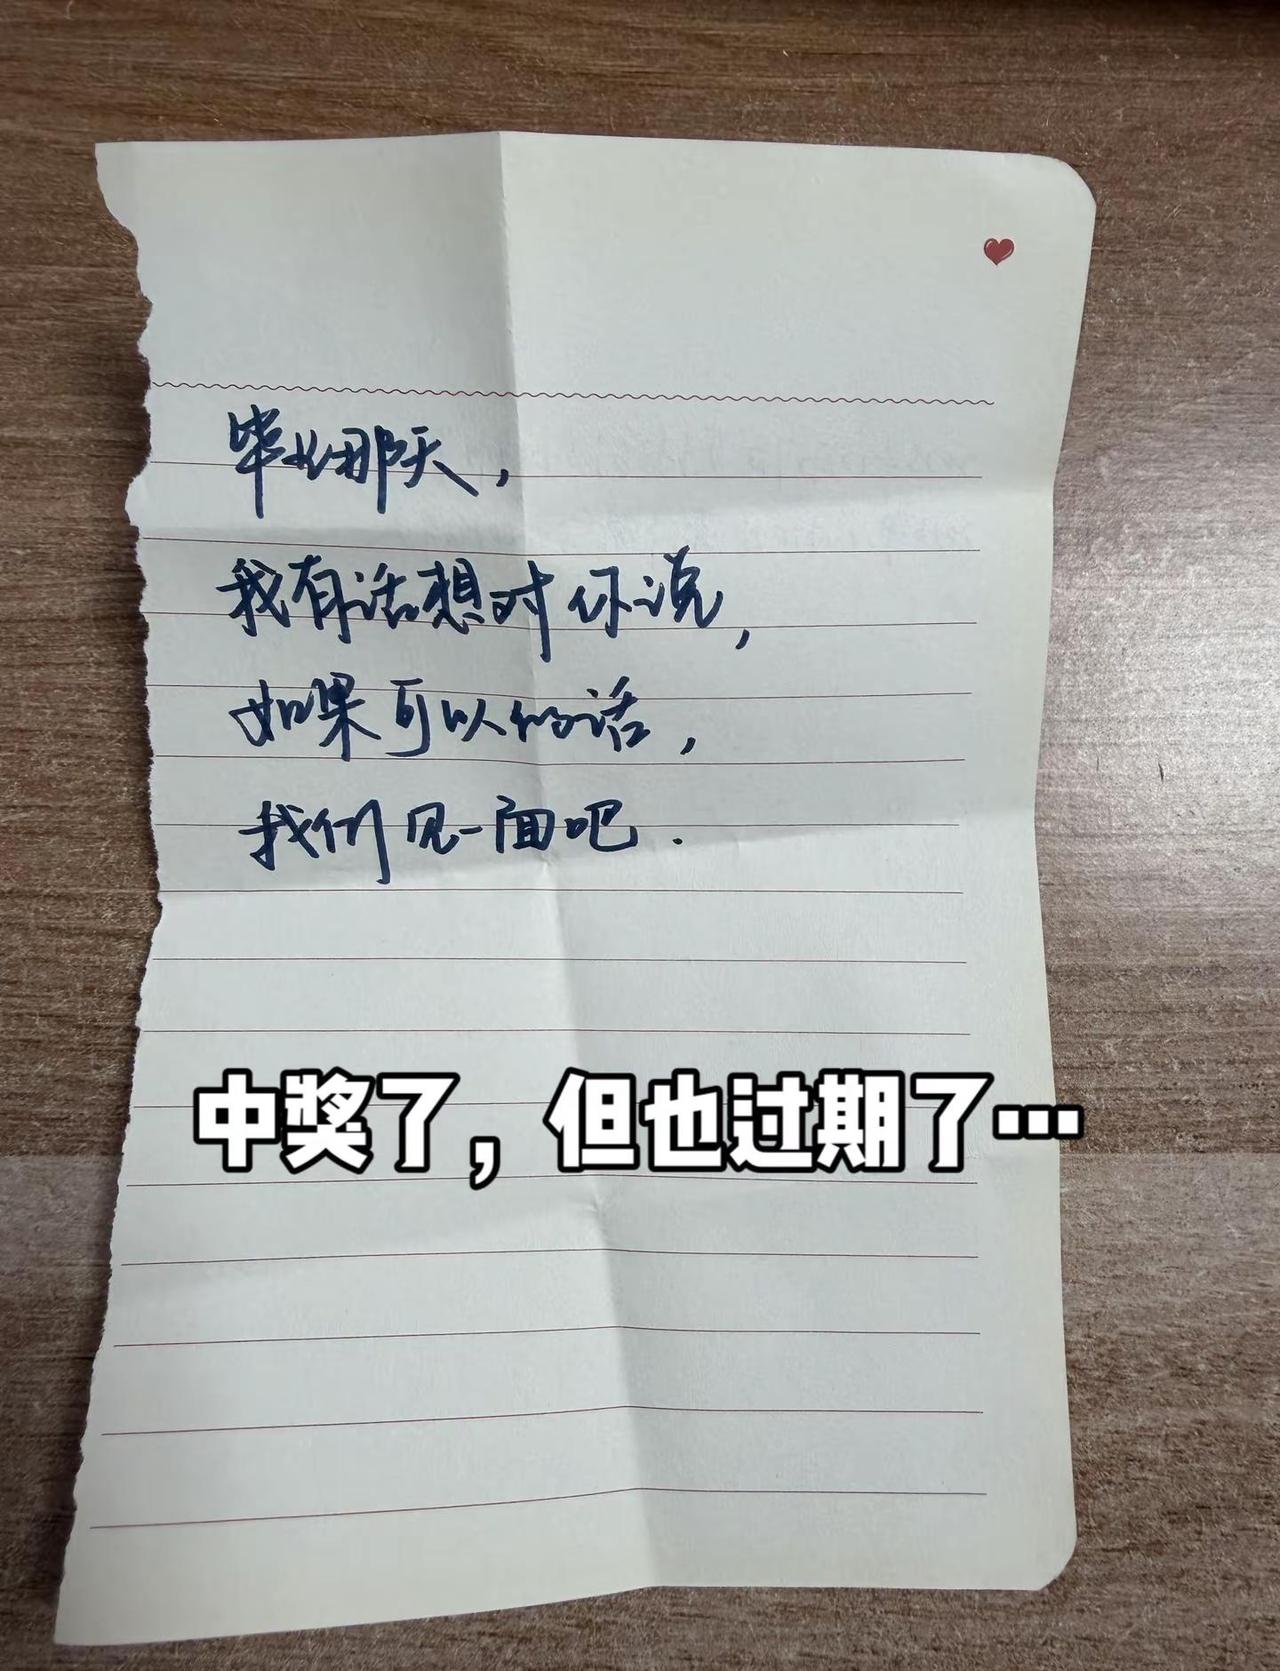 毕业那天，
我有话想对你说，
如果可以的话，
我们见一面吧.
中奖了，但也过期了…